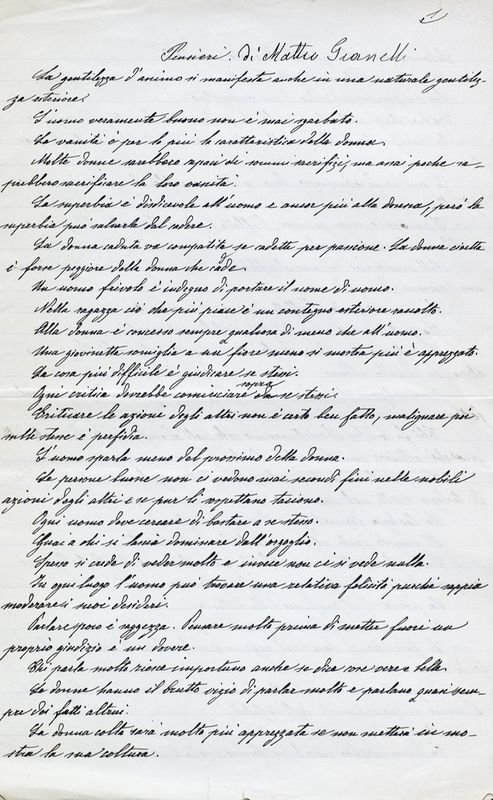 1
Pensieri di Matteo Gianelli
La gentilezza d'animo si manifesta anche in una naturale gentilez-
za esteriore.
L'uomo veramente buono non è mai sgarbato.
La vanità è per lo più la caratteristica della donna.
Molte donne sarebbero capaci di sommi sacrifizi, ma assai poche sa-
prebbero sacrificare la loro vanità.
La superbia è disdicevole all'uomo e ancor più alla donna, però la
superbia può salvarla dal cadere.
La donna caduta va compatita se cadette per passione. La donna civetta
è forse peggiore della donna che cade.
Un uomo frivolo è indegno di portare il nome di uomo.
Nella ragazza ciò che più piace è un contegno esteriore raccolto.
Alla donna è concesso sempre qualcosa di meno che all'uomo.
Una giovinetta somiglia a un fiore meno si mostra più è apprezzato.
La cosa più difficile è giudicare se stessi.
Ogni critica dovrebbe cominciare sopra se stessi.
Criticare le azioni degli altri non è certo ben fatto, malignare poi
sulle stesse è perfidia.
L'uomo sparla meno del prossimo della donna.
Le persone buone non ci vedono mai secondi fini nelle nobili
azioni degli altri e se pur li sospettano tacciono.
Ogni uomo deve cercare di bastare a se stesso.
Guai a chi si lascia dominare dall'orgoglio.
Spesso si crede di veder molto e invece non ci si vede nulla.
In ogni luogo l'uomo può trovare una relativa felicità purché sappia
moderare i suoi desideri.
Parlare poco è saggezza. Pensare molto prima di metter fuori un
proprio giudizio è un dovere.
Chi parla molto riesce importuno anche se dice cose vere e belle.
Le donne hanno il brutto vizio di parlar molto e parlano quasi sem-
pre dei fatti altrui.
La donna colta sarà molto più apprezzata se non metterà in mo-
stra la sua coltura.